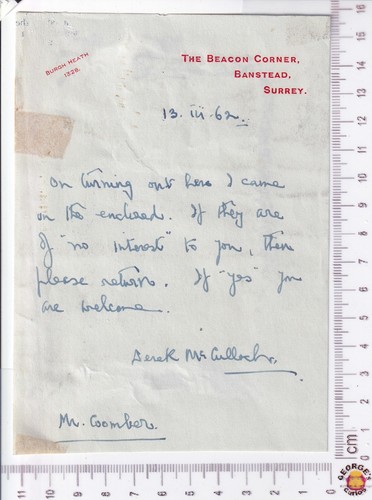 BURGH HEATH
1328.
THE BEACON CORNER,
BANSTEAD,
SURREY.
13. iii. 62.
On turning out here I came
on the enclosed. If they are
of "no interest" to you, then
please return. If "yes" you
are welcome.
Derek McCulloch.
Mr. Coomber.
cm
0 1 2 3 4 5 6 7 8 9 10 11 12 13 14 15 16
11 10 9 8 7 6 5 4 3 2 1 0
GEORGE'S